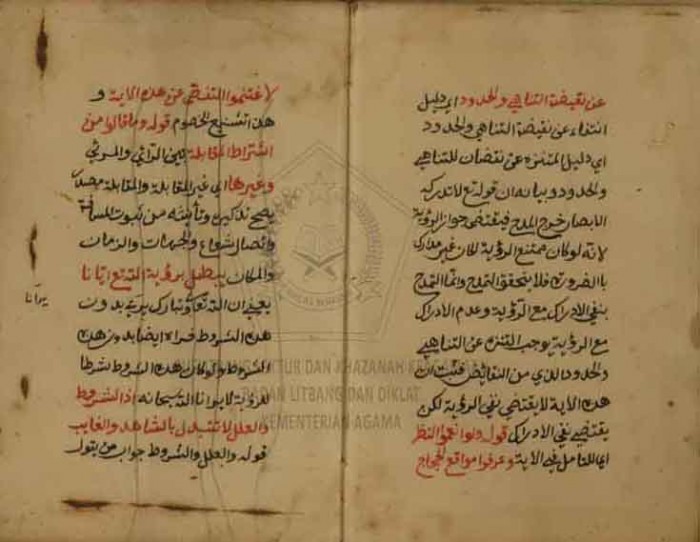 عن نقيضة التناهي والحدود اي دليل
انتفاء عن نقيضة التناهي والحدود
اي دليل المتنزه عن نقصان للتناهي
والحدود وبيانه ان قوله تع لا تدركه
الابصار خرج المدح فيقتضي جواز الرؤية
لانه لو كان ممتنع الرؤية لكان غير مدرك
با الضرورة فلا يتحقق التمدح وانما التمدح
بنفي الادراك مع الرؤية وعدم الادراك
مع الرؤية يوجب التنزه عن التناهي
والحدود الذي من النقايض فثبت ان
هذه الاية لا يقتضي نفي الرؤية لكن
يقتضي نفي الادراك قوله ولو انعموا النظر
اي التامل في الاية وعرفوا مواقع الحجاج
لاغتنموا التفصي عن هذه الاية و
هذا تشنيع الخصوم قوله وما قالوا من
اشتراط المقابلة بين الرآئي والمرئي
وغيرها اي غير المقابلة والمقابلة مصدر
يصح تذكيره وتأنيثه من ثبوت المسافة
واتصال شعاع والجهات والزمان
والمكان يبطل برؤية الله تع ايانا
يعني ان الله تعالى وتبارك يرى بدون
هذه الشروط فنراه ايضا بدون هذه
الشروط ولو كان هذه الشروط شرطا
للرؤية لا يرانا الله سبحانه اذ الشروط
والعلل لا تتبدل بالشاهد والغايب
قوله والعلل والشروط جواب من يقول
يرانا
PUSLITBANG LEKTUR DAN KHAZANAH KEAGAMAAN
BADAN LITBANG DAN DIKLAT
KEMENTERIAN AGAMA